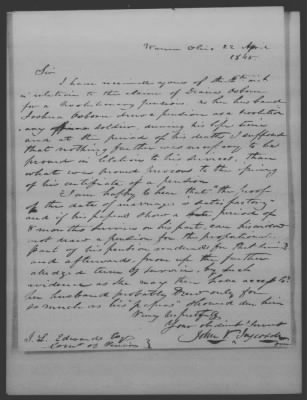 Warren Ohio 22 April
1845
Sir
I have received yours of the 2d inst
in relation to the claim of Osborn
for a Revolutionary pension. As her husband
Joshua Osborn drew a pension as a Revolution
ary soldier during his life time
and at the period of his death, I supposed
that nothing further was necessary to be
proved in relation to his services, than
what was proved previous to the giving
of his certificate of a pension
I am happy to hear that "the proof
of the date of marriage is satisfactory"
and if his papers show a period of
8 months service on his part, can his widow
not draw a pension for the proportional
part of his pension and
and afterwards, prove up the further
alledged term of service, by such
evidence as she may then have access to?
her husband probably drew only for
so much as his "papers" showed due him
Very respectfully
Your obedient Servant
J. L. Edwards Esq
Com of Pensions
John